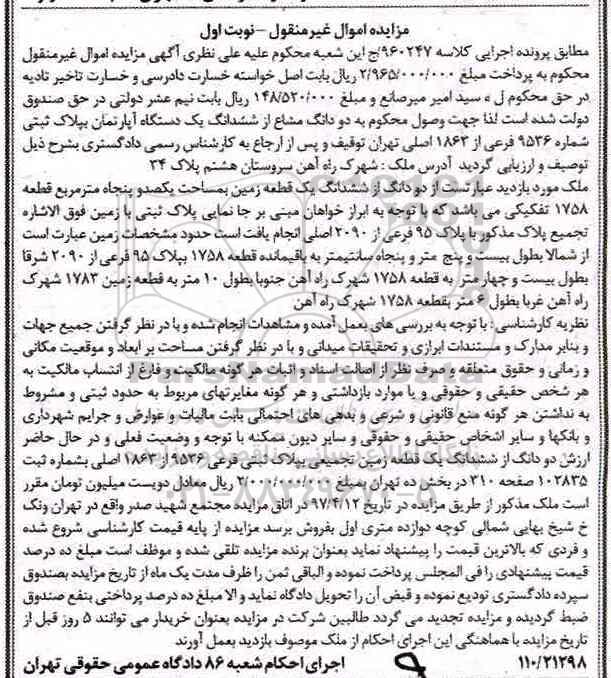 مزایده اموال غیرمنقول - نوبت اول
مطابق پرونده اجرایی کلاسه ۹۶۰۲۴۷/ج این شعبه محکوم علیه علی نظری آگهی مزایده اموال غیرمنقول
محکوم به پرداخت مبلغ ۲/۹۶۵/۰۰۰/۰۰۰ ریال بابت اصل خواسته خسارت دادرسی و خسارت تاخیر تادیه
در حق محکوم له سید امیر میرصانع و مبلغ ۱۴۸/۵۲۰/۰۰۰ ریال بابت نیم عشر دولتی در حق صندوق
دولت شده است لذا جهت وصول محکوم به دو دانگ مشاع از ششدانگ یک دستگاه آپارتمان بپلاک ثبتی
شماره ۹۵۳۶ فرعی از ۱۸۶۳ اصلی تهران توقیف و پس از ارجاع به کارشناس رسمی دادگستری بشرح ذیل
توصیف و ارزیابی گردید آدرس ملک : شهرک راه آهن سروستان هشتم پلاک ۳۴
ملک مورد بازدید عبارتست از دو دانگ از ششدانگ یک قطعه زمین بمساحت یکصدو پنجاه مترمربع قطعه
۱۷۵۸ تفکیکی می باشد که با توجه به ابراز خواهان مبنی بر جا نمایی پلاک ثبتی با زمین فوق الاشاره
تجمیع پلاک مذکور با پلاک ۹۵ فرعی از ۲۰۹۰ اصلی انجام یافت است حدود مشخصات زمین عبارت است
از شمالا بطول بیست و پنج متر و پنجاه سانتیمتر به باقیمانده قطعه ۱۷۵۸ بپلاک ۹۵ فرعی از ۲۰۹۰ شرقا
بطول بیست و چهار متر به قطعه ۱۷۵۸ شهرک راه آهن جنوبا بطول ۱۰ متر به قطعه زمین ۱۷۸۳ شهرک
راه آهن غربا بطول ۶ متر بقطعه ۱۷۵۸ شهرک راه آهن
نظریه کارشناسی : با توجه به بررسی های بعمل آمده و مشاهدات انجام شده و با در نظر گرفتن جمیع جهات
و بنابر مدارک و مستندات ابرازی و تحقیقات میدانی و با در نظر گرفتن مساحت بر ابعاد و موقعیت مکانی
و زمانی و حقوق متعلقه و صرف نظر از اصالت اسناد و اثبات هر گونه مالکیت و فارغ از انتساب مالکیت به
هر شخص حقیقی و حقوقی و یا موارد بازداشتی و هر گونه مغایرتهای مربوط به حدود ثبتی و مشروط
به نداشتن هر گونه منع قانونی و شرعی و بدهی های احتمالی بابت مالیات و عوارض و جرایم شهرداری
و بانکها و سایر اشخاص حقیقی و حقوقی و سایر دیون ممکنه با توجه و وضعیت فعلی و در حال حاضر
ارزش دو دانگ از ششدانگ یک قطعه زمین تجمیعی بپلاک ثبتی فرعی ۹۵۳۶ از ۱۸۶۳ اصلی بشماره ثبت
۱۰۲۸۳۵ صفحه ۳۱۰ در بخش ده تهران بمبلغ ۲/۰۰۰/۰۰۰/۰۰۰ ریال معادل دویست میلیون تومان مقرر
است ملک مذکور از طریق مزایده در تاریخ ۹۷/۴/۱۲ در اتاق مزایده مجتمع شهید صدر واقع در تهران ونک
خ شیخ بهایی شمالی کوچه دوازده متری اول بفروش برسد مزایده از پایه قیمت کارشناسی شروع شده
و فردی که بالاترین قیمت را پیشنهاد نماید بعنوان برنده مزایده تلقی شده و موظف است مبلغ ده درصد
قیمت پیشنهادی را فی المجلس پرداخت نموده و الباقی ثمن را ظرف مدت یک ماه از تاریخ مزایده بصندوق
سپرده دادگستری تودیع نموده و قبض آن را تحویل دادگاه نماید و الا مبلغ ده درصد پرداختی بنفع صندوق
ضبط گردیده و مزایده تجدید می گردد طالبین شرکت در مزایده بعنوان خریدار می توانند ۵ روز قبل از
تاریخ مزایده با هماهنگی این اجرای احکام از ملک موصوف بازدید بعمل آورند
۱۱۰/۲۱۲۹۸ اجرای احکام شعبه ۸۶ دادگاه عمومی حقوقی تهران